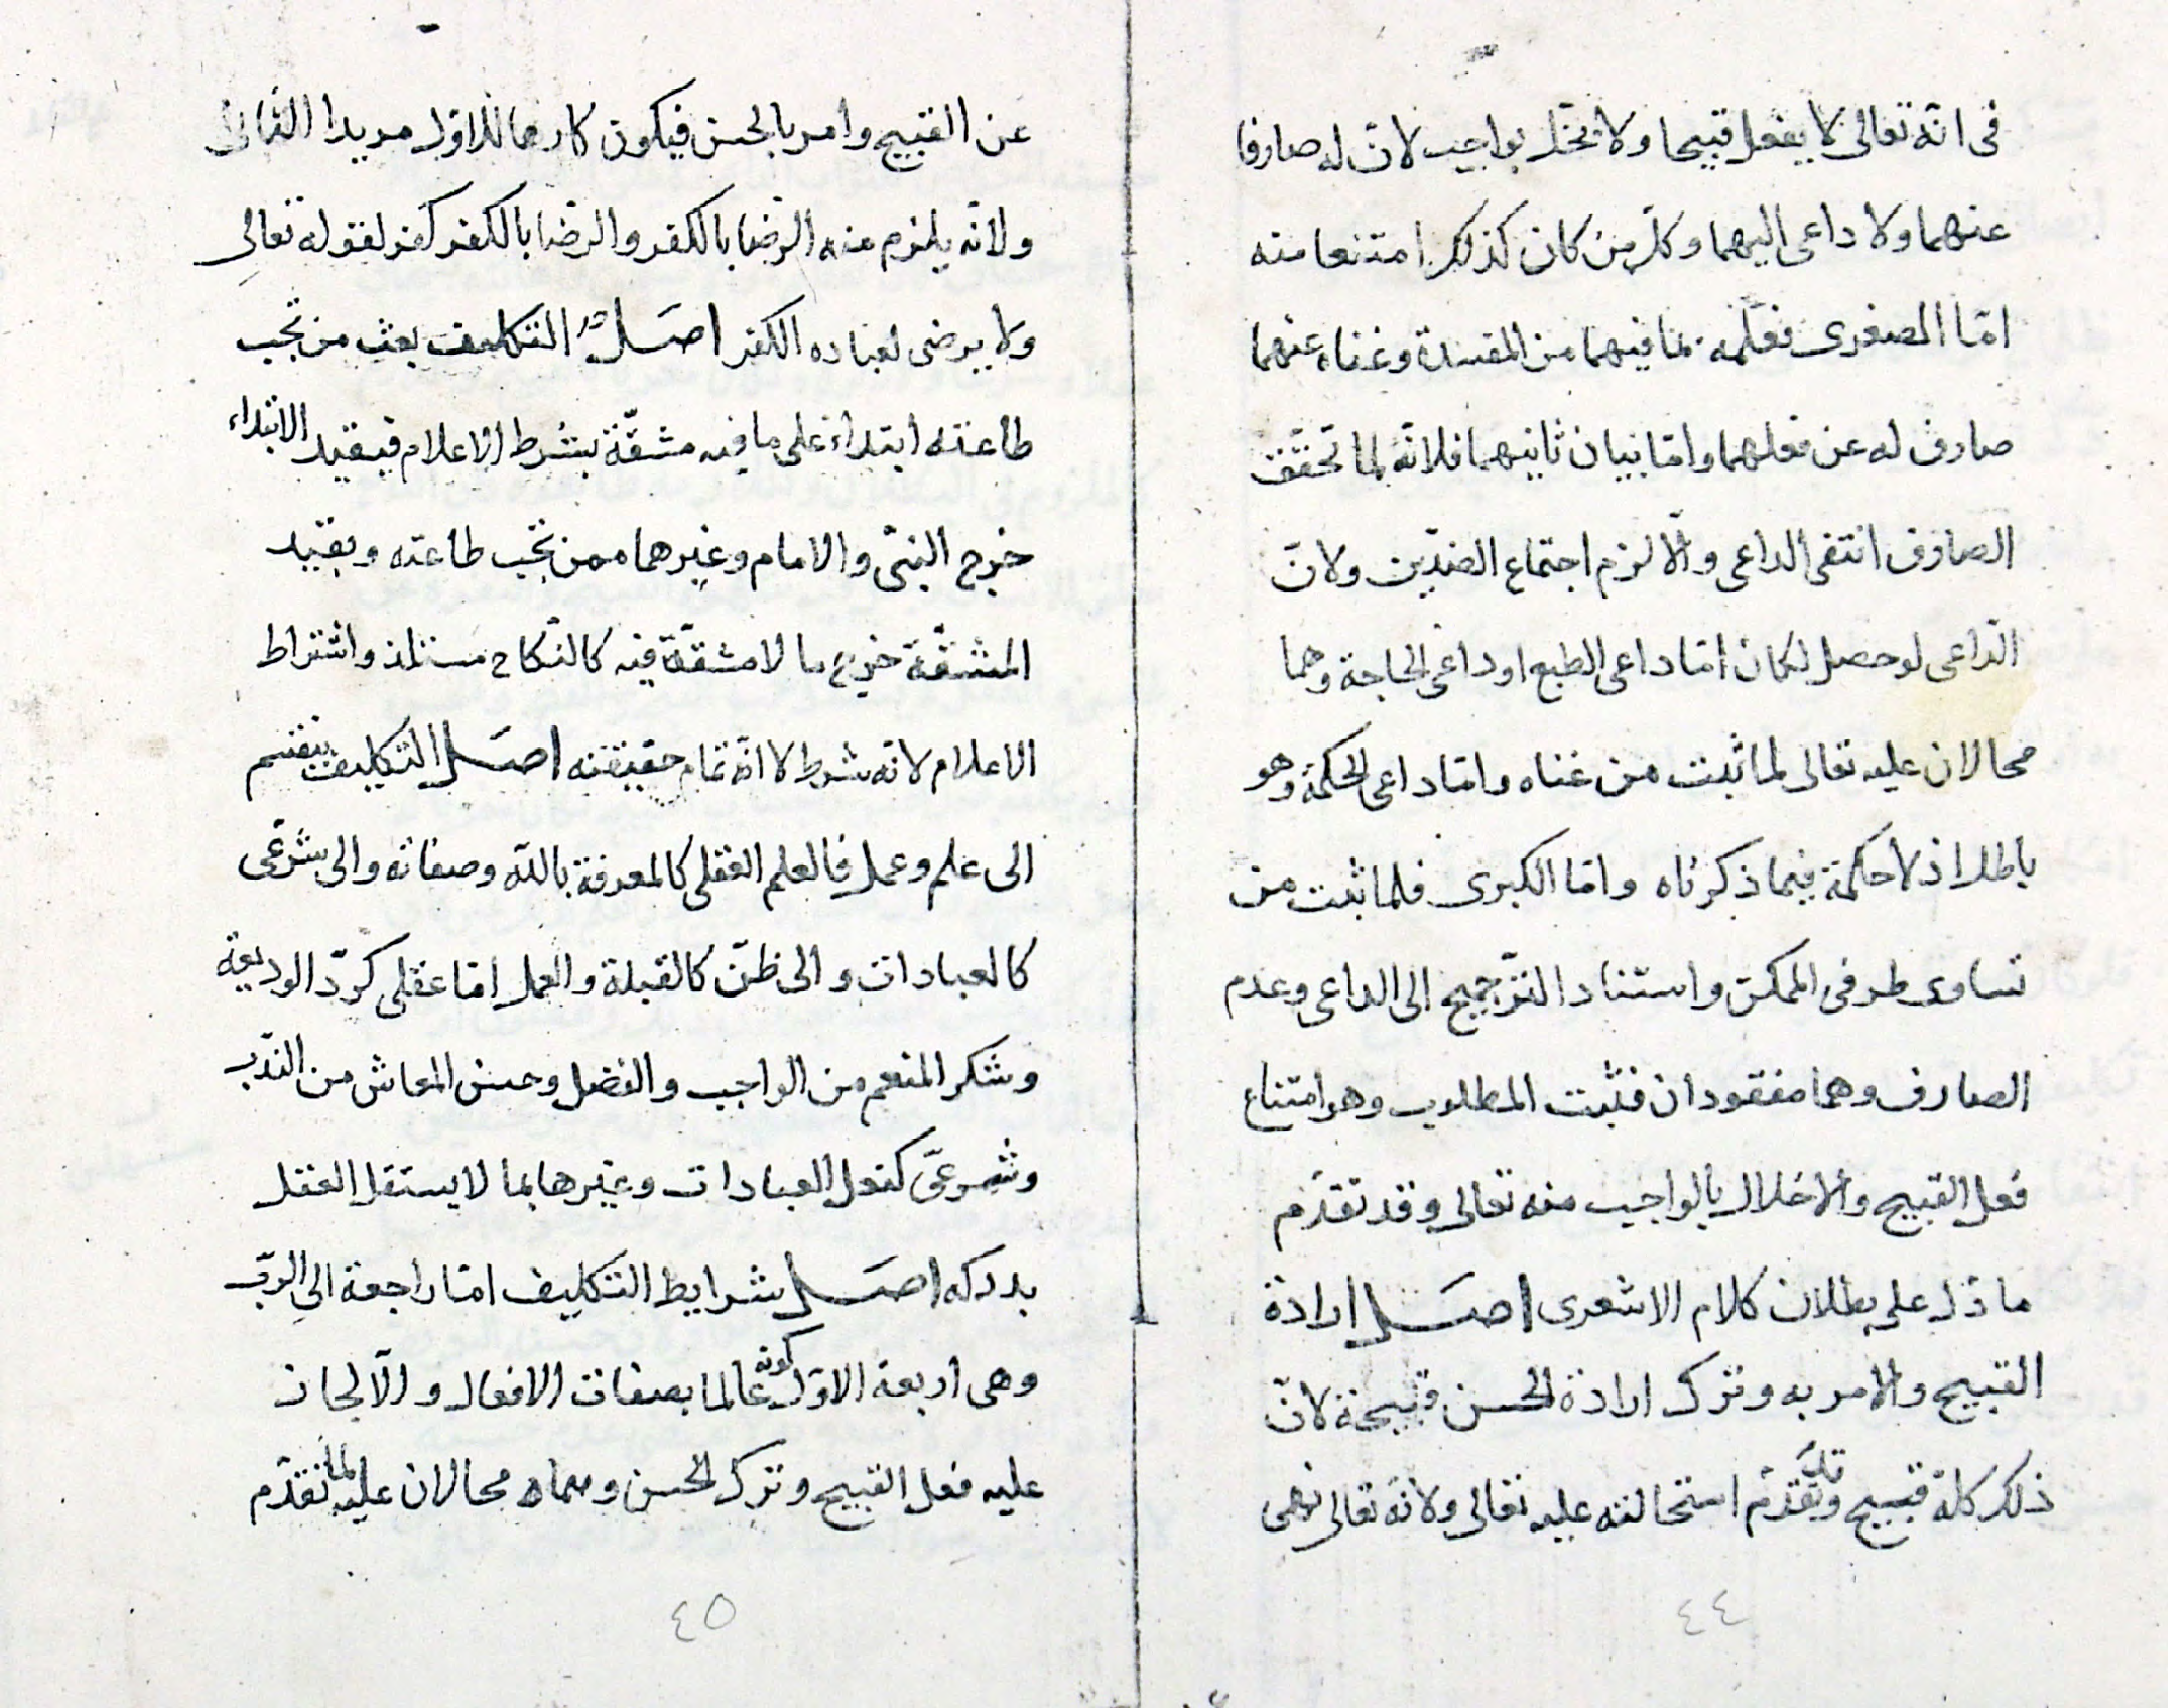 فى انّه تعالى لا يفعل قبيحا ولا يخلّ بواجب لانّ له صارفا
عنهما ولا داعى اليهما وكلّ من كان كذلك امتنعا منه
امّا الصغرى فعلمه بما فيهما من المفسدة وغناه عنهما
صارف له عن فعلهما وامّا بيان ثانيهما فلانّه لما تحقّق
الصارف انتفى الداعى والّا لزم اجتماع الضدّين ولانّ
الدّاعى لو حصل لكان امّا داعى الطبع او داعى الحاجة وهما
محالان عليه تعالى لما ثبت من غناه وامّا داعى الحكمة وهو
باطل اذ لا حكمة فيما ذكرناه وامّا الكبرى فلما ثبت من
تساوى طرفى الممكن واستناد الترّجيح الى الداعى وعدم
الصارف وهما مفقودان فثبت المطلوب وهو امتناع
فعل القبيح والاخلال بالواجب منه تعالى وقد تقدّم
ما دلّ على بطلان كلام الاشعرى اصل ارادة
القبيح والامر به وترك ارادة الحسن قبيحة لانّ
ذلك كلّه قبيح وقد تقدّم استحالته عليه تعالى ولانّه تعالى نهى
٤٤
عن القبيح وامر بالحسن فيكون كارها للاوّل مريدا الثانى
ولانّه يلزم منه الرّضا بالكفر والرّضا بالكفر كفر لقوله تعالى
ولا يرضى لعباده الكفر اصل التكليف بعث من تجب
طاعته ابتداء على ما فيه مشقّة بشرط الاعلام فبقيد الابتداء
خرج النبىّ والامام وغيرهما ممن تجب طاعته وبقيد
المشقّة خرج ما لا مشقّة فيه كالنّكاح مستلذ واشتراط
الاعلام لانّه شرط لا انّه تمام حقيقته اصل التكليف ينقسم
الى علم وعمل فالعلم العقلى كالمعرفة باللّه وصفاته والى شرعّى
كالعبادات والى ظنّ كالقبلة والعمل امّا عقلى كردّ الوديعة
وشكر المنعم من الواجب والفضل وحسن المعاش من النّدب
وشرعىّ كفعل العبادات وغيرها بما لا يستقل العقل
بدركه اصل شرايط التكليف امّا راجعة الى الربّ
وهى اربعة الاوّل كونه عالما بصفات الافعال والّا لجاز
عليه فعل القبيح وترك الحسن وهما محالان عليه لما تقدّم
٤٥